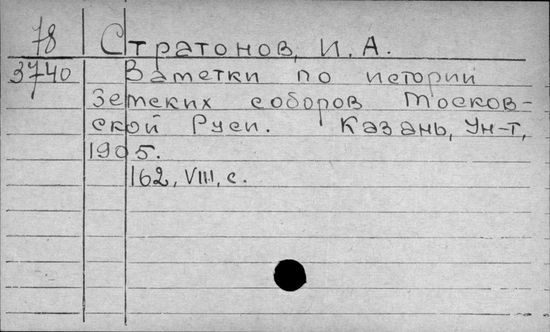 78 Стратонов, И. А.
3740 Заметки по истории
Земских соборов Москов-
ской Руси. Казань, Ун-т,
1905.
162, VIII, с.